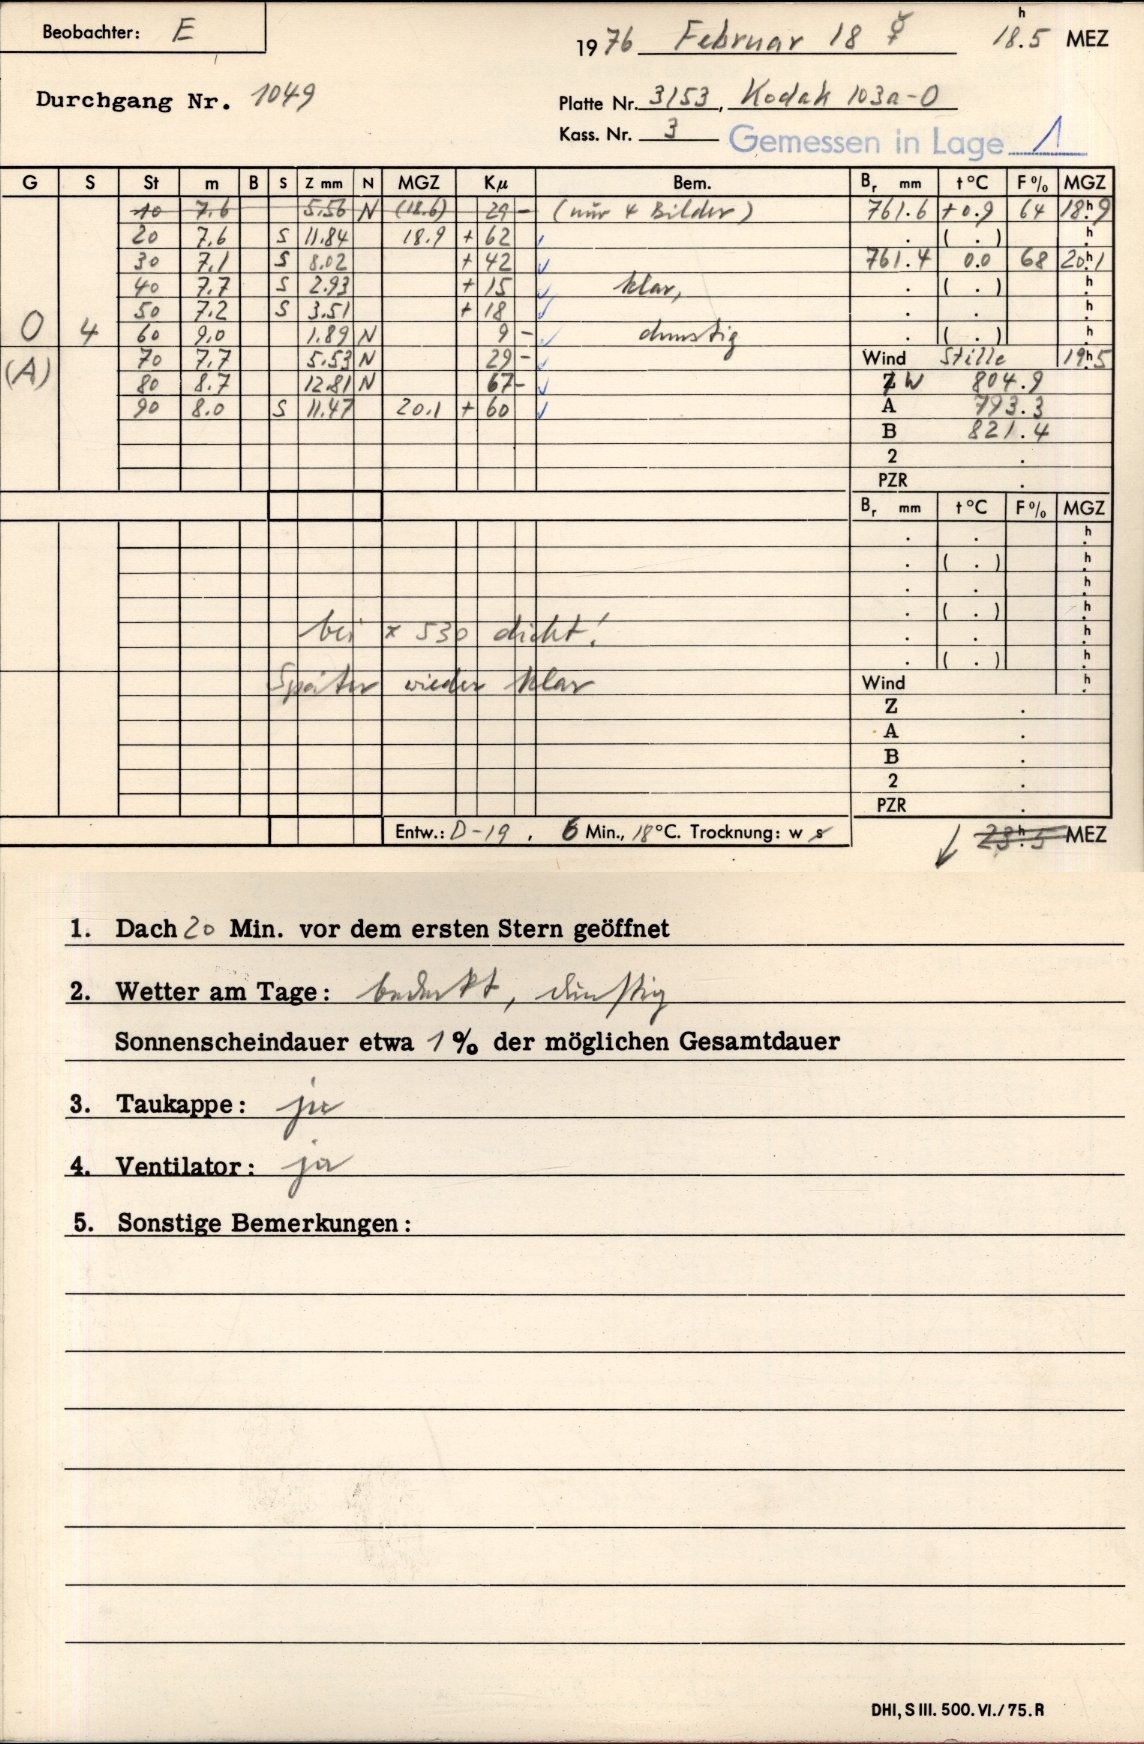 Beobachter: E
1976 Februar 18 ☿ 18.5 h MEZ
Durchgang Nr. 1049
Platte Nr. 3153, Kodak 103a-O
Kass. Nr. 3 Gemessen in Lage 1
G S St m B S Z mm N MGZ Kμ Bem. Br mm t°C F% MGZ
10 7.6 5.56 N (18.6) 29 - (nur 4 Bilder) 761.6 +0.9 64 18h.9
20 7.6 S 11.84 18.9 + 62 . ( . ) h.
30 7.1 S 8.02 + 42 761.4 0.0 68 20h.1
40 7.7 S 2.93 + 15 klar, . ( . ) h.
50 7.2 S 3.51 + 18 . . h.
O 4 60 9.0 1.89 N 9 - dunstig . ( . ) h.
(A) 70 7.7 5.53 N 29 - Wind Stille 19h.5
80 8.7 12.81 N 67 - Z W 804.9
90 8.0 S 11.47 20.1 + 60 A 793.3
B 821.4
2 .
PZR .
Br mm t°C F% MGZ
. . h.
. ( . ) h.
. . h.
. ( . ) h.
bei * 530 dicht! . . h.
. ( . ) h.
Später wieder klar Wind h.
Z .
A .
B .
2 .
PZR .
Entw.: D-19, 6 Min., 18°C. Trocknung: w s 23h.5 MEZ
1. Dach 20 Min. vor dem ersten Stern geöffnet
2. Wetter am Tage: bedeckt, dunstig
Sonnenscheindauer etwa 1% der möglichen Gesamtdauer
3. Taukappe: ja
4. Ventilator: ja
5. Sonstige Bemerkungen:
DHI, S III. 500. VI./75. R